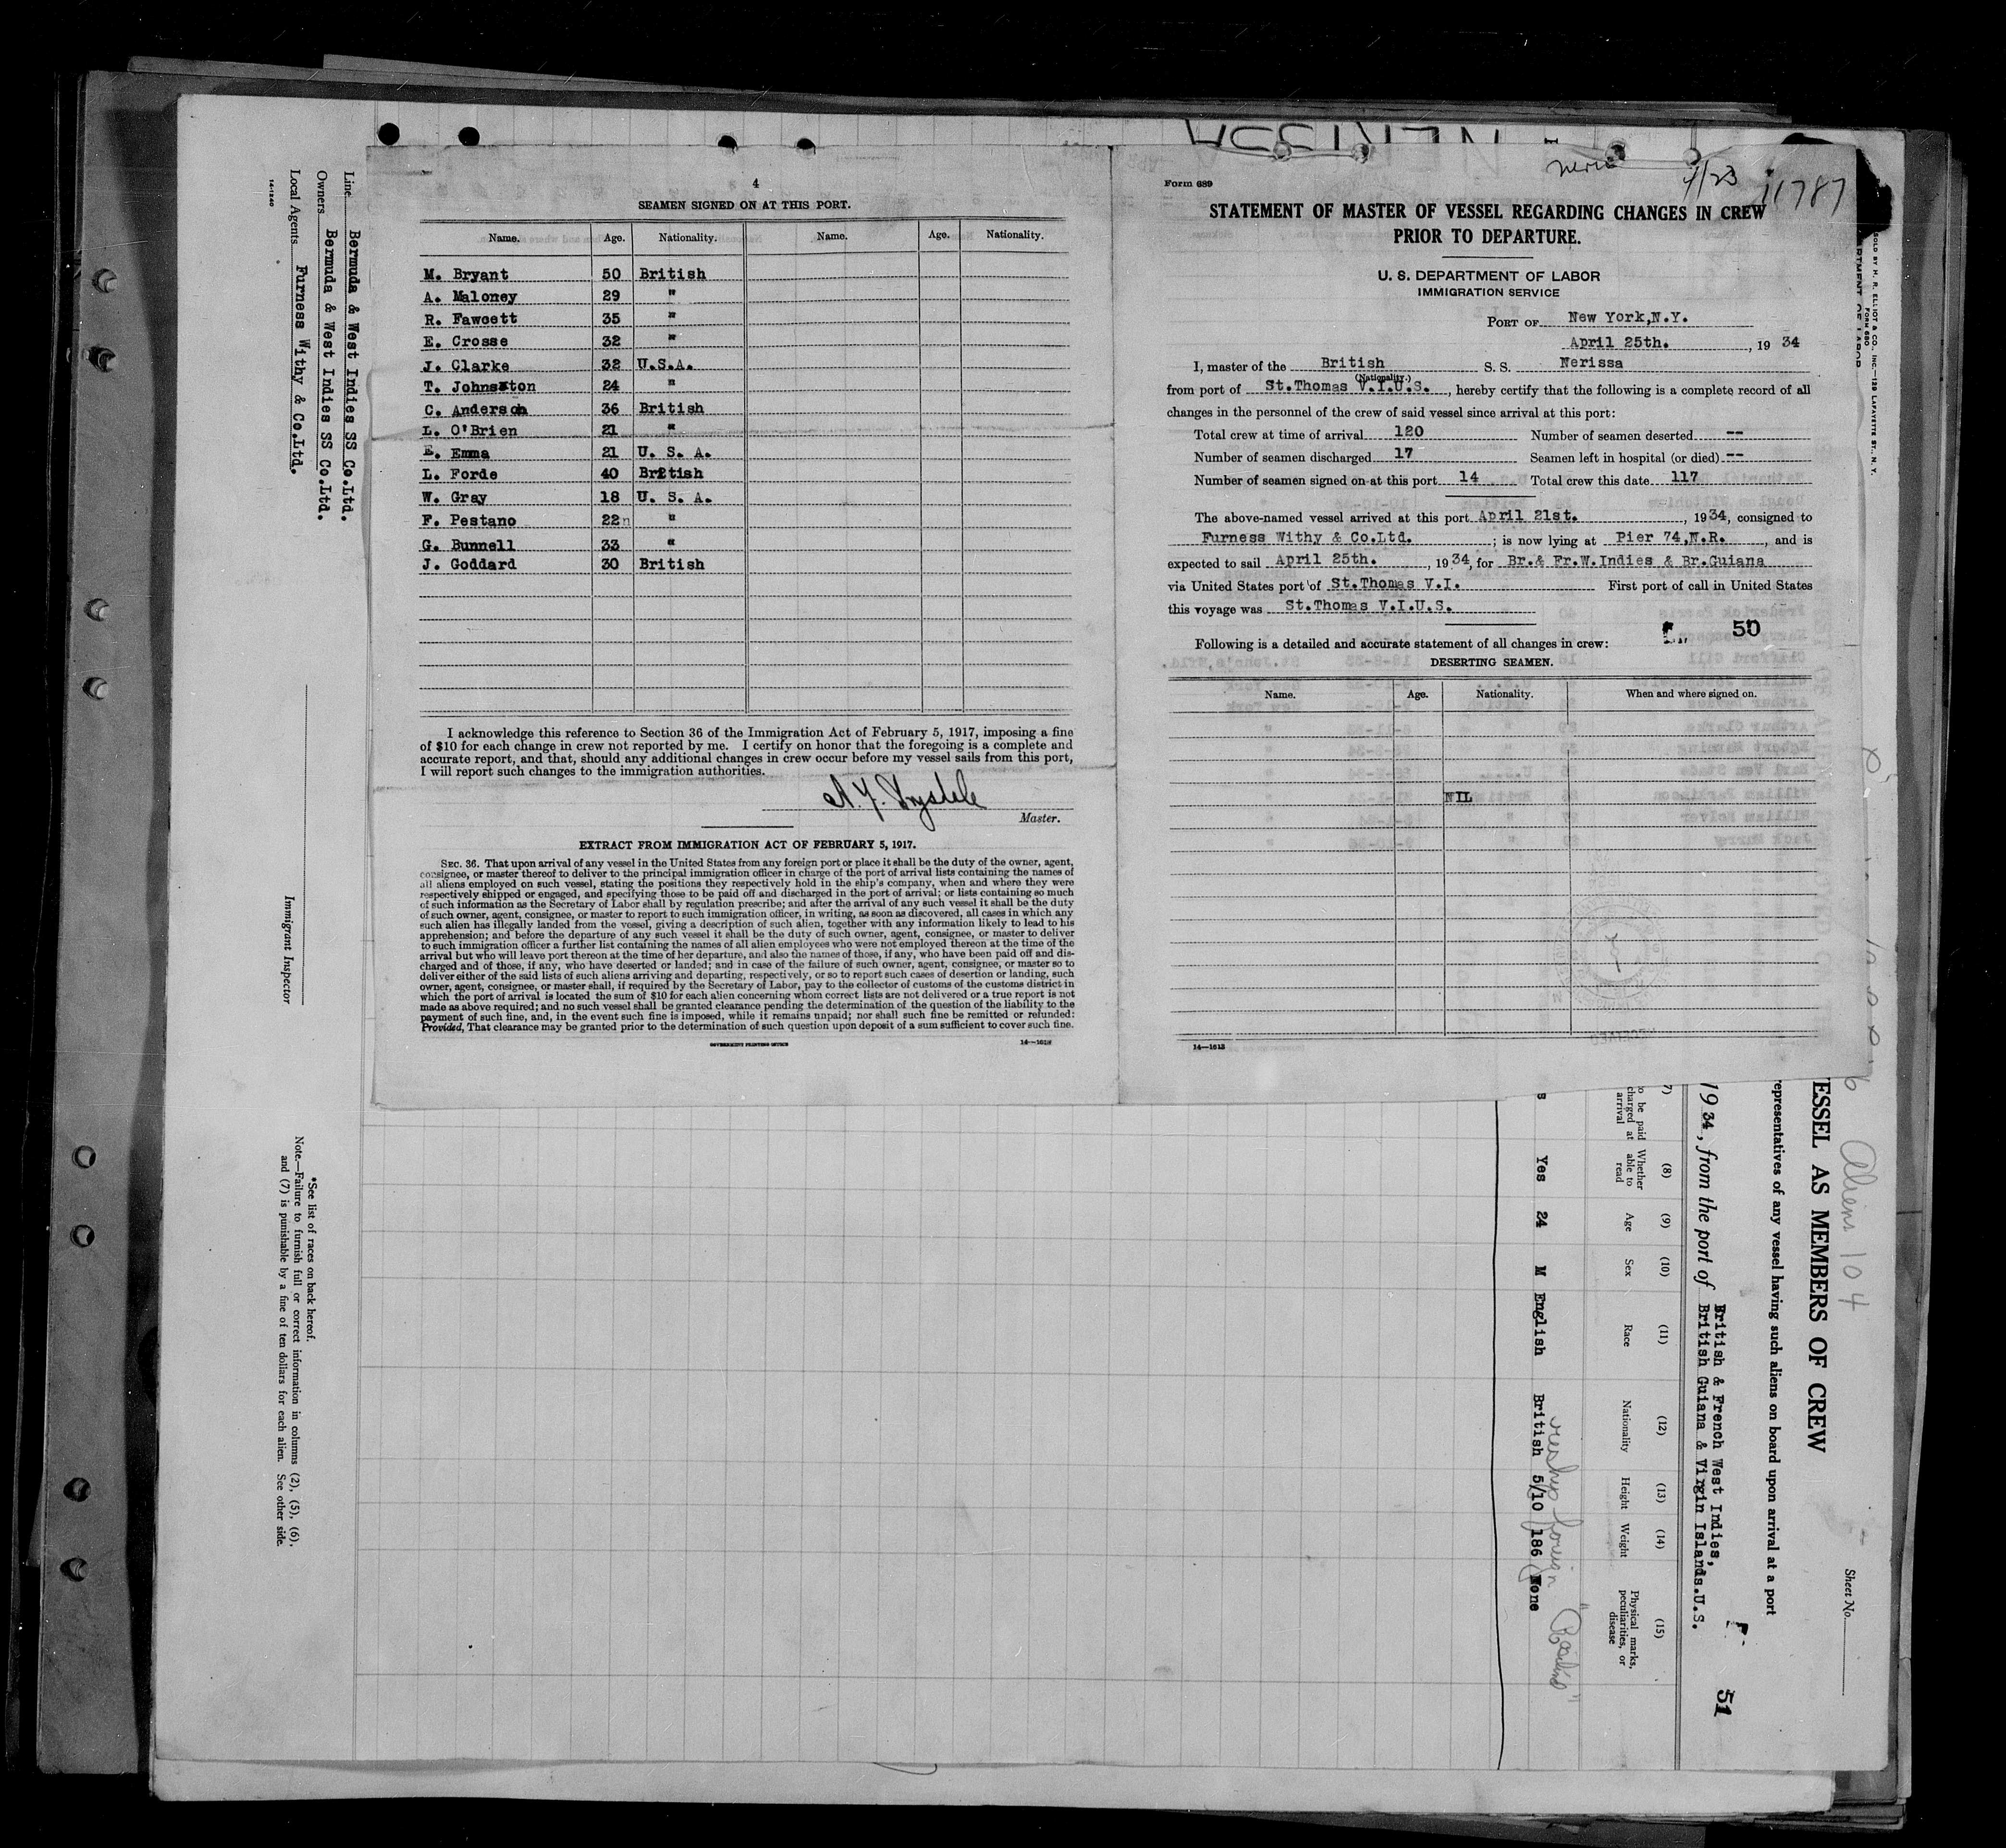 4
SEAMEN SIGNED ON AT THIS PORT.
Name. Age. Nationality. Name. Age. Nationality.
M. Bryant 50 British
A. Maloney 29 "
R. Fawcett 35 "
E. Crosse 32 "
J. Clarke 32 U.S.A.
T. Johnston 24 "
C. Anderson 36 British
L. O'Brien 21 "
E. Emma 21 U. S. A.
L. Forde 40 British
W. Gray 18 U. S. A.
F. Pestano 22 "
G. Bunnell 33 "
J. Goddard 30 British
I acknowledge this reference to Section 36 of the Immigration Act of February 5, 1917, imposing a fine
of $10 for each change in crew not reported by me. I certify on honor that the foregoing is a complete and
accurate report, and that, should any additional changes in crew occur before my vessel sails from this port,
I will report such changes to the immigration authorities.
Master.
EXTRACT FROM IMMIGRATION ACT OF FEBRUARY 5, 1917.
SEC. 36. That upon arrival of any vessel in the United States from any foreign port or place it shall be the duty of the owner, agent,
consignee, or master thereof to deliver to the principal immigration officer in charge of the port of arrival lists containing the names of
all aliens employed on such vessel, stating the positions they respectively hold in the ship's company, when and where they were
respectively shipped or engaged, and specifying those to be paid off and discharged in the port of arrival; or lists containing so much
of such information as the Secretary of Labor shall by regulation prescribe; and after the arrival of any such vessel it shall be the duty
of such owner, agent, consignee, or master to report to such immigration officer, in writing, as soon as discovered, all cases in which any
such alien has illegally landed from the vessel, giving a description of such alien, together with any information likely to lead to his
apprehension; and before the departure of any such vessel it shall be the duty of such owner, agent, consignee, or master to deliver
to such immigration officer a further list containing the names of all alien employees who were not employed thereon at the time of the
arrival but who will leave port thereon at the time of her departure, and also the names of those, if any, who have been paid off and dis-
charged and of those, if any, who have deserted or landed; and in case of the failure of such owner, agent, consignee, or master so to
deliver either of the said lists of such aliens arriving and departing, respectively, or so to report such cases of desertion or landing, such
owner, agent, consignee, or master shall, if required by the Secretary of Labor, pay to the collector of customs of the customs district in
which the port of arrival is located the sum of $10 for each alien concerning whom correct lists are not delivered or a true report is not
made as above required; and no such vessel shall be granted clearance pending the determination of the question of the liability to the
payment of such fine, and, in the event such fine is imposed, while it remains unpaid; nor shall such fine be remitted or refunded:
Provided, That clearance may be granted prior to the determination of such question upon deposit of a sum sufficient to cover such fine.
GOVERNMENT PRINTING OFFICE
NERISSA
4/23 11787
Form 689
STATEMENT OF MASTER OF VESSEL REGARDING CHANGES IN CREW
PRIOR TO DEPARTURE.
U. S. DEPARTMENT OF LABOR
IMMIGRATION SERVICE
PORT OF New York,N.Y.
April 25th. , 19 34
I, master of the British S. S. Nerissa
(Nationality.)
from port of St.Thomas V.I.U.S. , hereby certify that the following is a complete record of all
changes in the personnel of the crew of said vessel since arrival at this port:
Total crew at time of arrival 120 Number of seamen deserted --
Number of seamen discharged 17 Seamen left in hospital (or died) --
Number of seamen signed on at this port 14 Total crew this date 117
The above-named vessel arrived at this port April 21st. , 1934, consigned to
Furness Withy & Co.Ltd. ; is now lying at Pier 74,N.R. , and is
expected to sail April 25th. , 1934, for Br.& Fr.W.Indies & Br.Guiana
via United States port of St.Thomas V.I. First port of call in United States
this voyage was St.Thomas V.I.U.S.
50
Following is a detailed and accurate statement of all changes in crew:
DESERTING SEAMEN.
Name. Age. Nationality. When and where signed on.
NIL
14—1613
SOLD BY H. R. ELLIOT & CO., INC.—129 LAFAYETTE ST., N. Y.
FORM 680
Line Bermuda & West Indies SS Co.Ltd.
Owners Bermuda & West Indies SS Co.Ltd.
Local Agents Furness Withy & Co.Ltd.
14-1240
Immigrant Inspector
*See list of races on back hereof.
Note.—Failure to furnish full or correct information in columns (2), (5), (6),
and (7) is punishable by a fine of ten dollars for each alien. See other side.
Sheet No.
Aliens 104
ESSEL AS MEMBERS OF CREW
epresentatives of any vessel having such aliens on board upon arrival at a port
1934, from the port of British & French West Indies,
British Guiana & Virgin Islands.U.S.
51
7) (8) (9) (10) (11) (12) (13) (14) (15)
o be paid
charged at
arrival
Whether
able to
read
Age
Sex
Race
Nationality
Height
Weight
Physical marks,
peculiarities, or
disease
foreign
s Yes 24 M English British 5/10 186 None